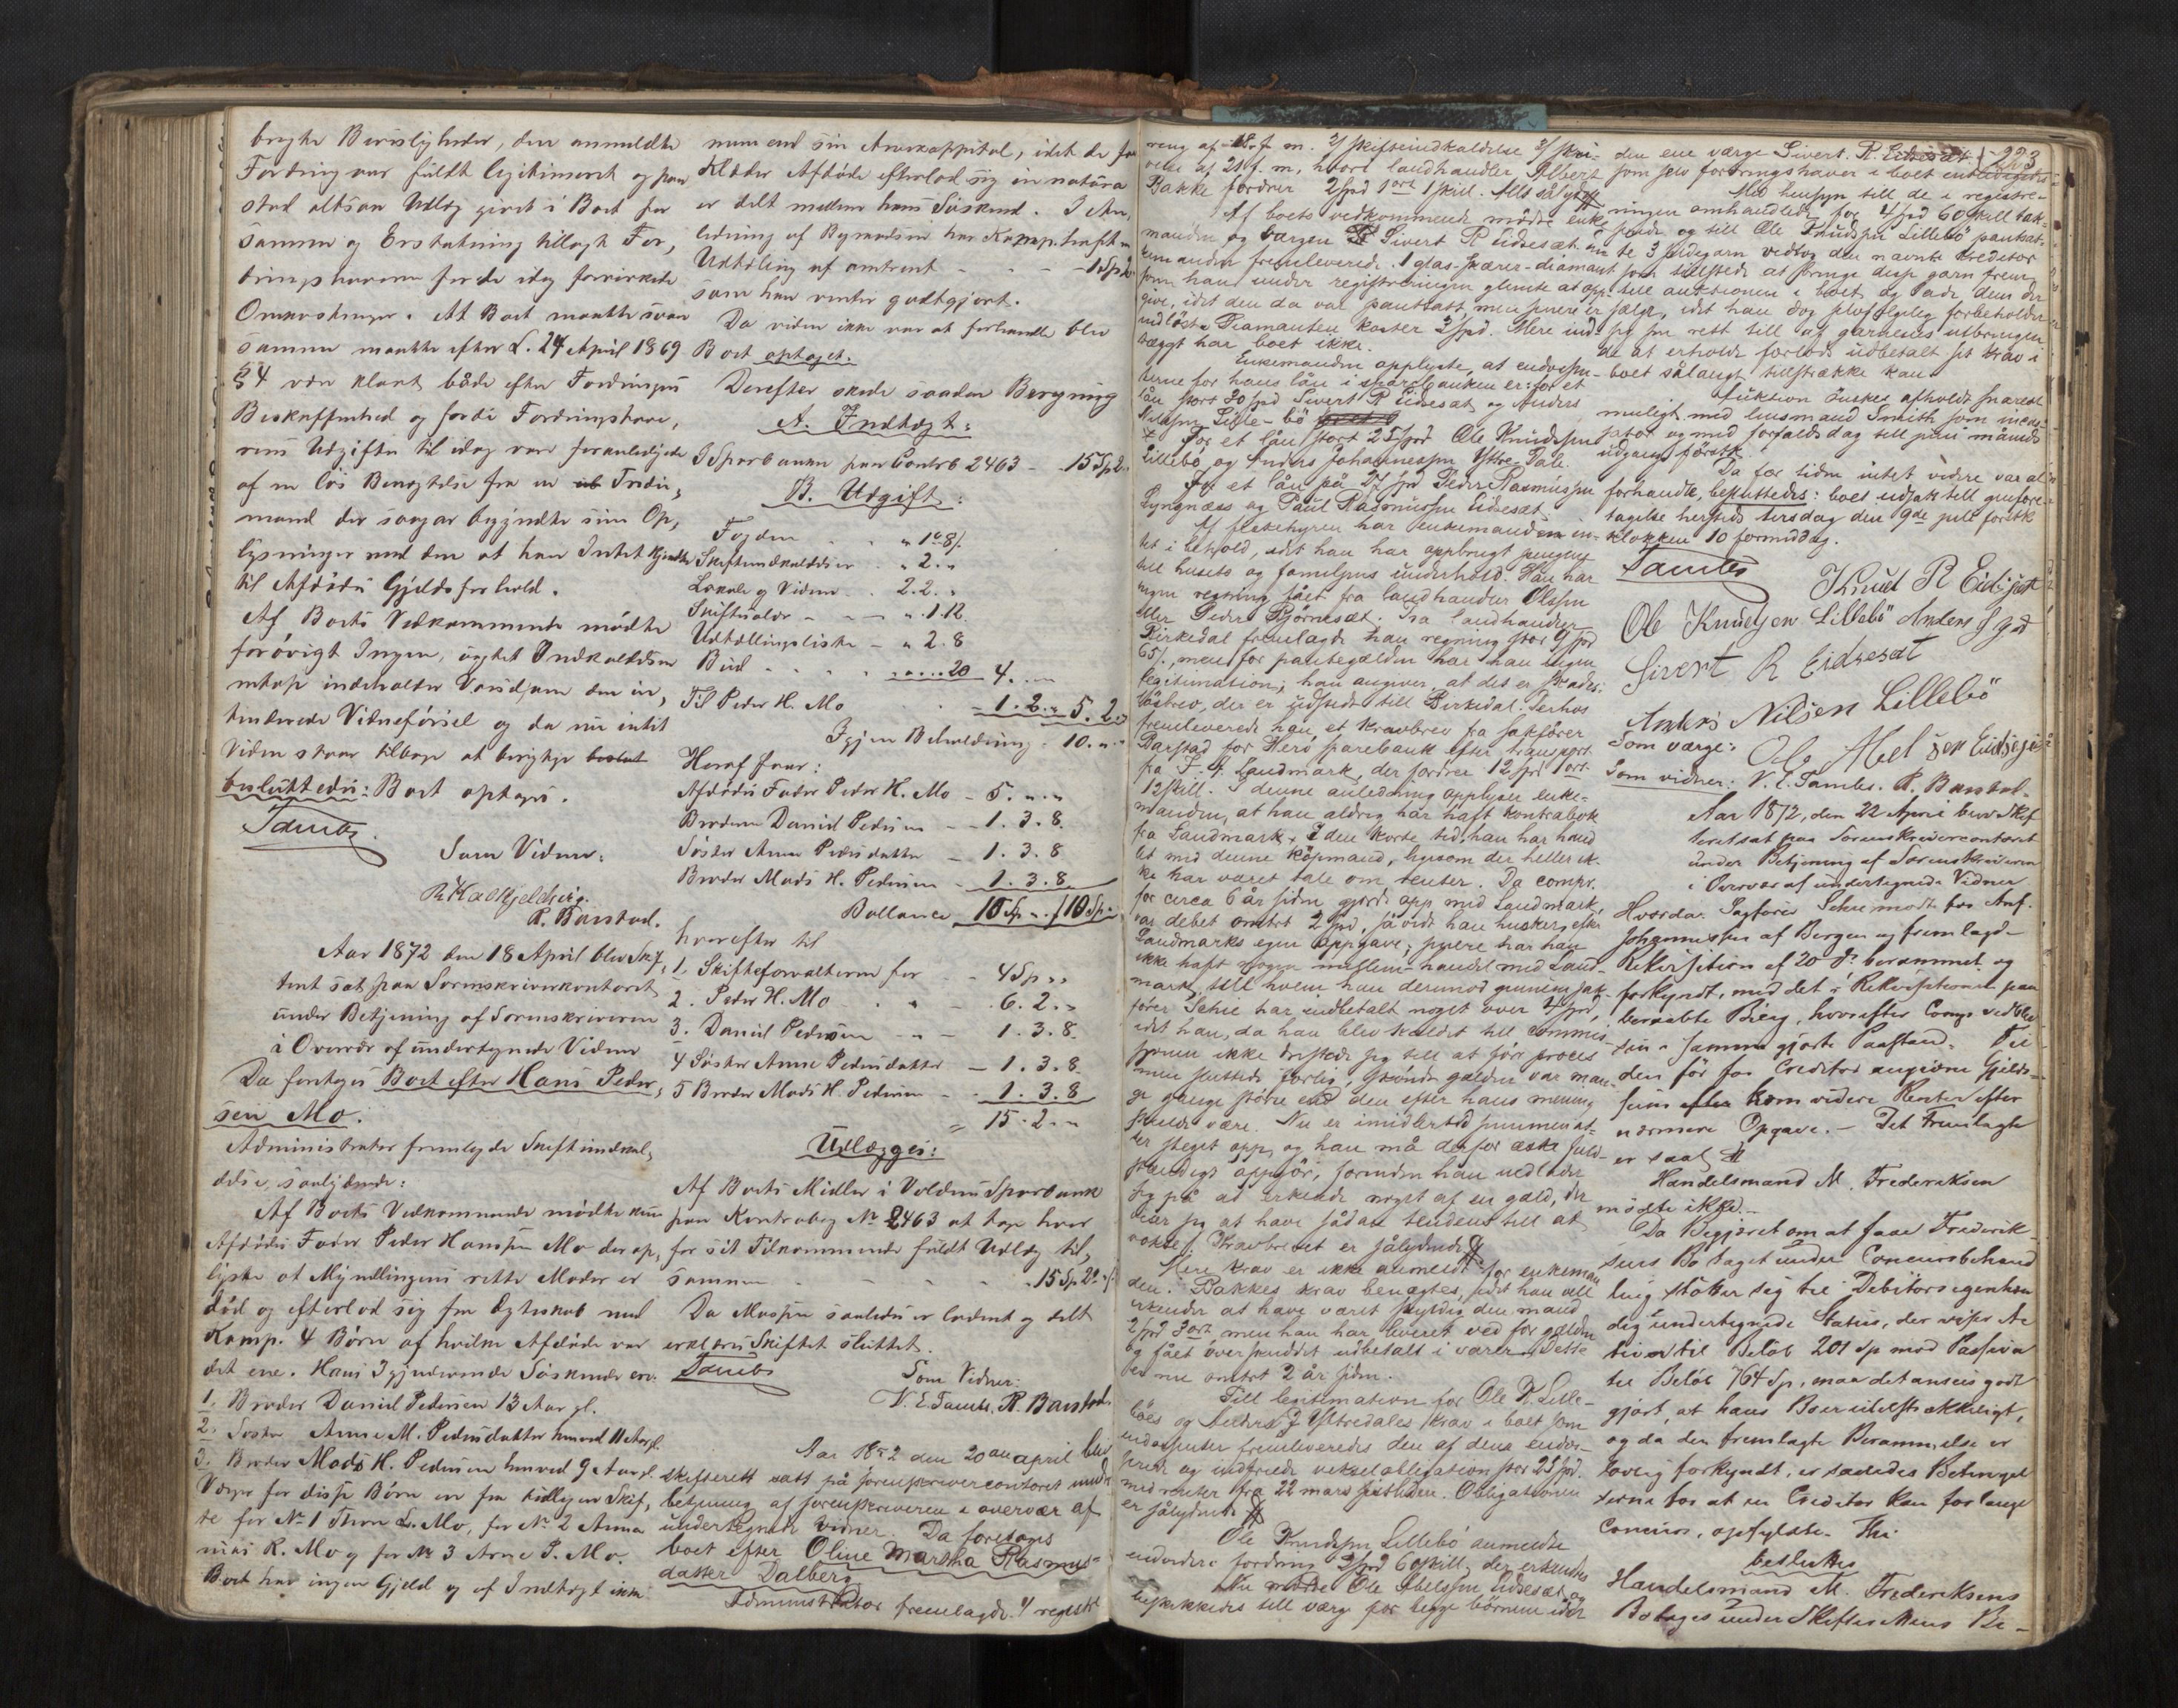 bragte Bevisligheder, den anmeldte
Fordring var fuldt legitimeret og paa-
stod altsaa Udlæg givet i Boet for
samme og Erstatning tillagt For-
dringshaveren for de idag forvirkede
Omkostninger. At Boet maatte svare
samme maatte efter L. 24 April 1869
§ 4 være klart både efter Fordringens
Beskaffenhed og fordi Fordringshave-
rens Udgifter til idag var foranledigede
af en løs Benægtelse fra en Tredie-
mand der saagar begyndte sine Op-
lysninger med den at han Intet kjendte
til Afdødes Gjeldsforhold.
Af Boets Vedkommende mødte
forøvrigt Ingen, uagtet Indkaldelsen
indeholder Varsel om den in-
tenderede Vidneførsel og da nu intet
Viden staar tilbage at besørge
besluttedes: Boet optages.
Landmark
Som Vidner:
R. Barstad.
Aar 1872 den 18 April blev Skif-
teret sat paa Sorenskriverkontoret
under Betjening af Sorenskriveren
i Overvær af undertegnede Vidner
Da foretoges Boet efter Hans Peder-
sen Mo.
Administrator fremlagde Skifteindkal-
delse, saalydende:
Af Boets Vedkommende mødte kun
Afdødes Fader Peder Hanssen Mo der op-
lyste at Myndlingens rette Moder er
død og efterlod sig fra Ægteskab med
Komp. 4 Børn af hvilke Afdøde var
det ene. Hans Igjenlevende Søskende ere:
1. Broder Daniel Pedersen 13 Aar gl.
2. Søster Anne M. Pedersdatter henved 11 Aar gl.
3. Broder Mads H. Pedersen henved 9 Aar gl.
Værger for disse Børn er fra tidligere Skif-
te for No 1 Iver L. Mo, for No 2 Anna
nias R. Mo og for No 3 Arne P. Mo.
Boet har ingen Gjeld og af Indtægt ikke
mere end sin Arvekappital, idet de faa
Klæder Afdøde efterlod sig in natura
er delt mellem hans Søskend. I An-
ledning af Begravelsen har Komp. havt en
Udtælling af omtrent - - - 1 Spd
som han venter godtgjort.
Da viden ikke var at forhandle blev
Boet optaget.
Derefter skede saadan Beregning
A. Indtægt:
I Sparbanken paa Contrb 2463 - 15 Spd.
B. Udgift:
Fogden - - " 1.8/.
Skifteindkaldelser - " 2. "
Lokale og Vidner - 2.2. "
Skiftesalær - - " 1.12.
Udtællingsliste - " 2.8
Bud - - - 20 4. "
Til Peder H. Mo - 1.2. " 5.2. "
Igjen Beholdning - 10. " "
Heraf faar:
Afdødes Fader Peder H. Mo - 5. " "
Broderen Daniel Pedersen - - 1.3.8.
Søster Anne Pedersdatter - 1.3.8
Broder Mads H. Pedersen - 1.3.8
Ballance 10 Sp " / 10 Sp "
hvorefter til
1. Skifteforvalteren for - - 4 Sp " "
2. Peder H. Mo - " 6.2. "
3. Daniel Pedersen - " - 1.3.8.
4 Søster Anne Pedersdatter - 1.3.8.
5 Broder Mads H. Pedersen - - 1.3.8
15.2. "
Udlægges:
Af Boets Midler i Voldens Sparbank
paa Kontrabog No 2463 at tage hver
for sit Tilkommende fuldt Udlæg til-
sammen - - - - 15 Sp 2
Da Massen saaledes er berørt og delt
erklæres Skiftet sluttet.
Som Vidner:
V. E. Tambs. R. Barstad.
Aar 1872 den 20 april blev
skifterett satt på sorenskrivercontoret under
betjening af sorenskriveren i overvær af
undertegnede vidner. Da foretoges
boet efter Oline Martha Rasmus-
datter Dalberg
Administrator fremlagde 1/ registre-
ring af 18 f. m. 2/ skifteindkaldelse 3/ skri-
velse af 21 f. m, hvori landhandler Albert
Bakke fordrer 2 spd 1 ort 1 skill. Alt så lyd
Af boets vedkommende mødte enke-
manden og værgen Sivert R Eidsesæt. En
kemanden fremleverede 1 glas-skærer-diamant
som han under registreringen glemte at opp-
give, idet den da var pantsatt, men senere er
indløst. Diamanten koster 3 spd. Mere ind-
tægt har boet ikke.
Enkemanden opplyste, at endossen-
terne for hans lån i sparebanken er: for et
lån stort 30 spd Sivert R Eidsesæt og Anders
Nilssen Lille-bö
For et lån stort 25 spd Ole Knudssen
Lillebö og Anders Johannessen Ystre-Dale.
For et lån på 27 spd Peder Rasmussen
Lyngnæs og Paul Rasmussen Eidsesæt.
Af fiskehyren har enkemanden in-
tet i behold, idet han har oppbrugt pengene
till husets og familjens underhold. Han har
ingen regning fået fra landhandler Olssen
eller Peder Bjørnesæt. Fra landhandler
Birkedal fremlagde han regning stor 9 spd
65/., men for pantegælden har han ingen
legitimation; han angiver, at det er skades-
løsbrev, der er udstedt till Birkedal. Derhos
fremleverede han et kravbrev fra sakfører
Barstad for Herö sparebank efter transport
fra J. F. Landmark, der fordrer 12 spd 1 ort
12 skill. I denne anledning opplyser enke-
manden, at han aldrig har haft kontrabok
fra Landmark. I den korte tid han har hand-
let med denne köpmand, ligsom der heller ik-
ke har været tale om renter. Da compr.
for circa 6 år siden gjorde opp med Landmark,
var debet omtrt 2 spd, så vidt han husker, efter
Landmarks egen oppgave; senere har han
ikke haft nogen mellem-handel med Land-
mark, till hvem han derimod gennem sak-
fører Sehie har indbetalt noget over 2 spd,
idet han, da han blev kaldet till commis-
sjonen ikke dristede sig till at före proces
men sluttede forlig, skönt gælden var man-
ge gange större end den efter hans mening
skulde være. Nu er imidlertid summen at-
ter steget opp, og han må derfor æske fuld-
stændigt oppgör, forinden han indlader
sig på at erkende noget af en gæld, der
viser sig at have sådan tendens till at
vokse. Kravbrevet er sålydende
Mere krav er ikke anmeldt for enkeman-
den. Bakkes krav benægtes, idet han vel
erkender at have været skyldig den mand
2 spd 3 ort men han har leveret ved for gælden
og fået overskuddet udbetalt i varer. Dette
er nu omtrt 2 år siden.
Till legitimation for Ole K. Lille-
böes og Anders J Ystredales krav i boet som
endossenter fremleveredes den af dem endos-
serede og indfriede vekselobligation stor 25 spd.
med renter fra 22 mars sistleden. Obligationen
er sålydende
Ole Knudssen Lillebö anmeldte
endvidere fordring 2 spd 60 skill, der erkendtes
Nu mødte Ole Abelssen Eidsesæt og
beskikkedes till værge for begge börnene idet
den ene værge Sivert R. Eidsesæt 223
som selv fordringshaver i boet
Med hensyn till de i registre-
ringen omhandlede for 4 spd 60 skill
og till Ole Knudssen Lillebö pantsat-
te 3 sildegarn vedtog den nævnte kreditor
som tillstede at bringe disse garn frem
till auktionen i boet og lade dem der
sælges, idet han dog selvfölgelig forbeholder
sig sin rett till af garnenes utbringen-
de at erholde forlods udbetalt sit krav i
boet sålangt tillstrække kan
Auktion önskes afholdt snarest
muligt med lensmand Smith som incas-
sator og med forfaldsdag till juni måneds
udgang förstk.
Da for tiden intet videre var at
forhandle, besluttedes: boet udsatt till genfore-
tagelse hersteds tirsdag den 9de juli förstk
klokken 10 formiddag.
Tambs
Knud R Eidset
Ole Knudsen Lillebö Anders J
Sivert R Eidsesæt
Anders Nilsen Lillebö
Som værge: Ole Abelsen Eidseset
Som vidner: V. E. Tambs. R. Barstad.
Aar 1872, den 22 April blev Skif
teret sat paa Sorenskrivercontoret
under Betjening af Sorenskriveren
i Overvær af undertegnede Vidner
Hvorda: Sagfører Sehie mødte for Anf.
Johannessen af Bergen og fremlagde
Rekvisition af 20 ds berammet og
forkyndt, med det i Rekvisitionen paa
beraabte Bilag, hvorefter Comp. vedblev
sin i samme gjorte Paastand. Til
den før for Creditor angivne Gjelds-
sum kom videre Renter efter
nærmere Opgave. - Det Fremlagte
er saal
Handelsmand M. Frederiksen
mødte ikke.-
Da Begjæret om at faae Frederik-
sens Bo taget under Concursbehand
ling støtter sig til Debitors egenhæn
dig undertegnede Status, der viser Ac
tiva til Beløb 201 Sp mod Passiva
til Beløb 764 Sp, maa det ansees godt
gjort, at hans Bo er utilstrækkeligt,
og da den fremlagte Berammelse er
lovlig forkyndt, er saaledes Betingel
serne for at en Creditor kan forlange
Concurs, opfyldte. Thi
besluttes
Handelsmand M. Frederiksens
Bo tages under Skifterettens Be-